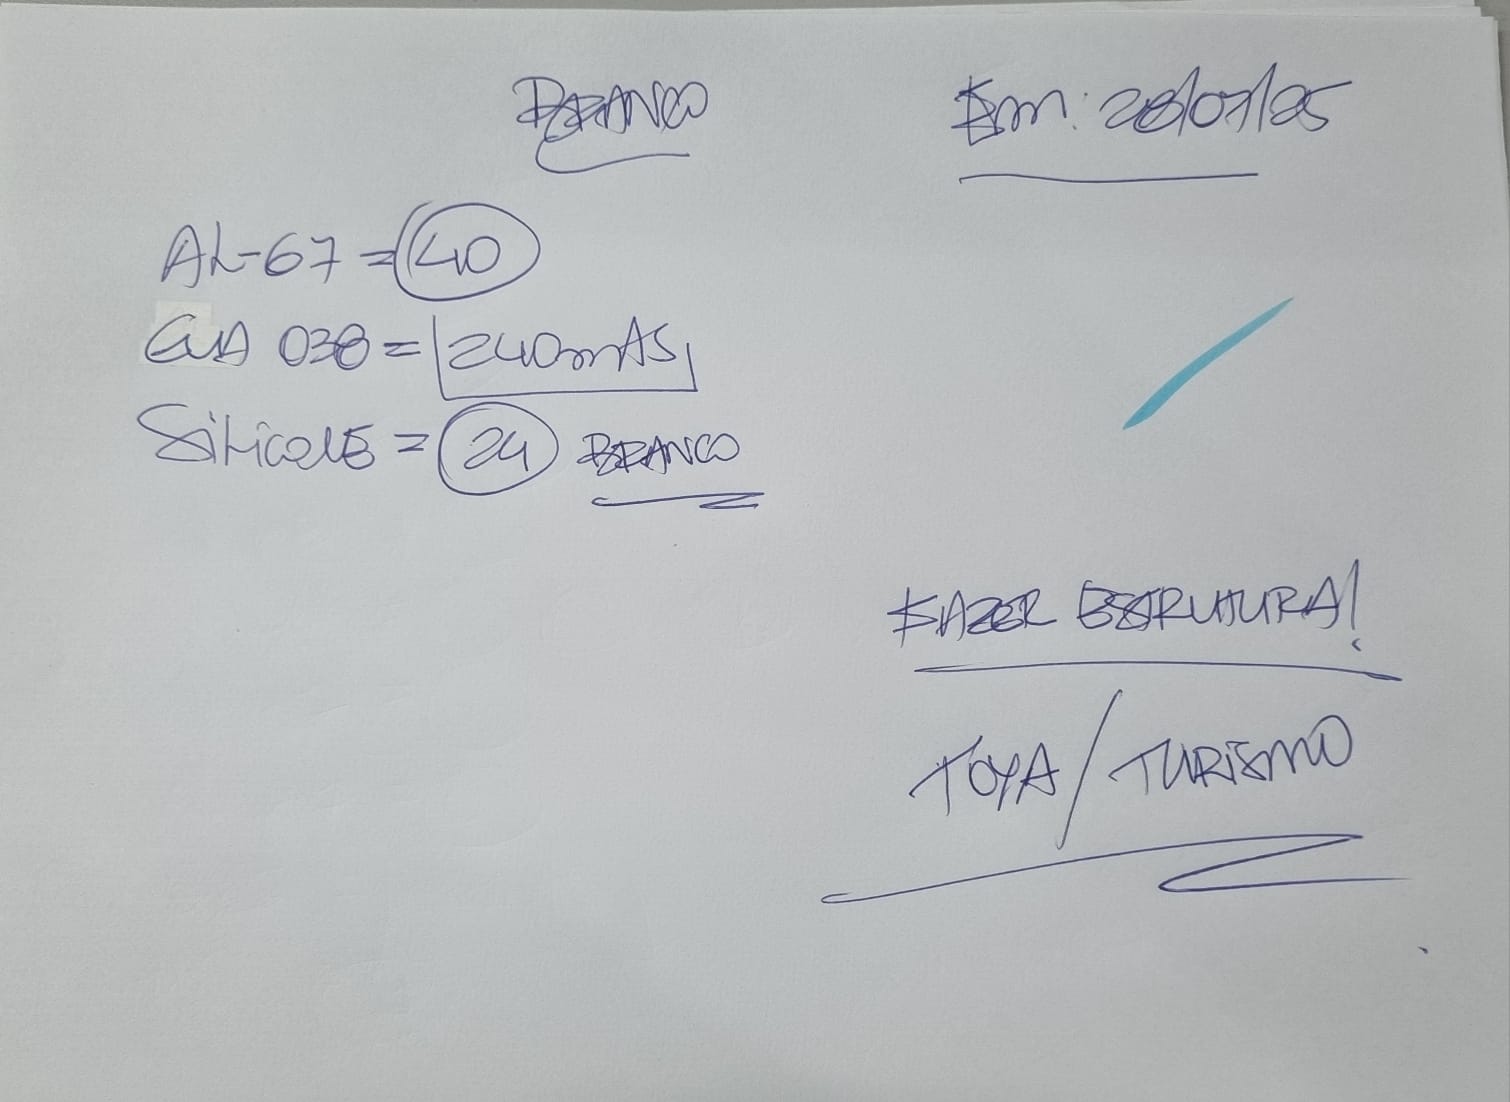 BRANCO
Em: 28/07/25
AL-67 = 40
GUA 038 = 240mAS
SiLicoNE = 24 BRANCO
FAZER ESTRUTURA!
TOYA / TURISMO